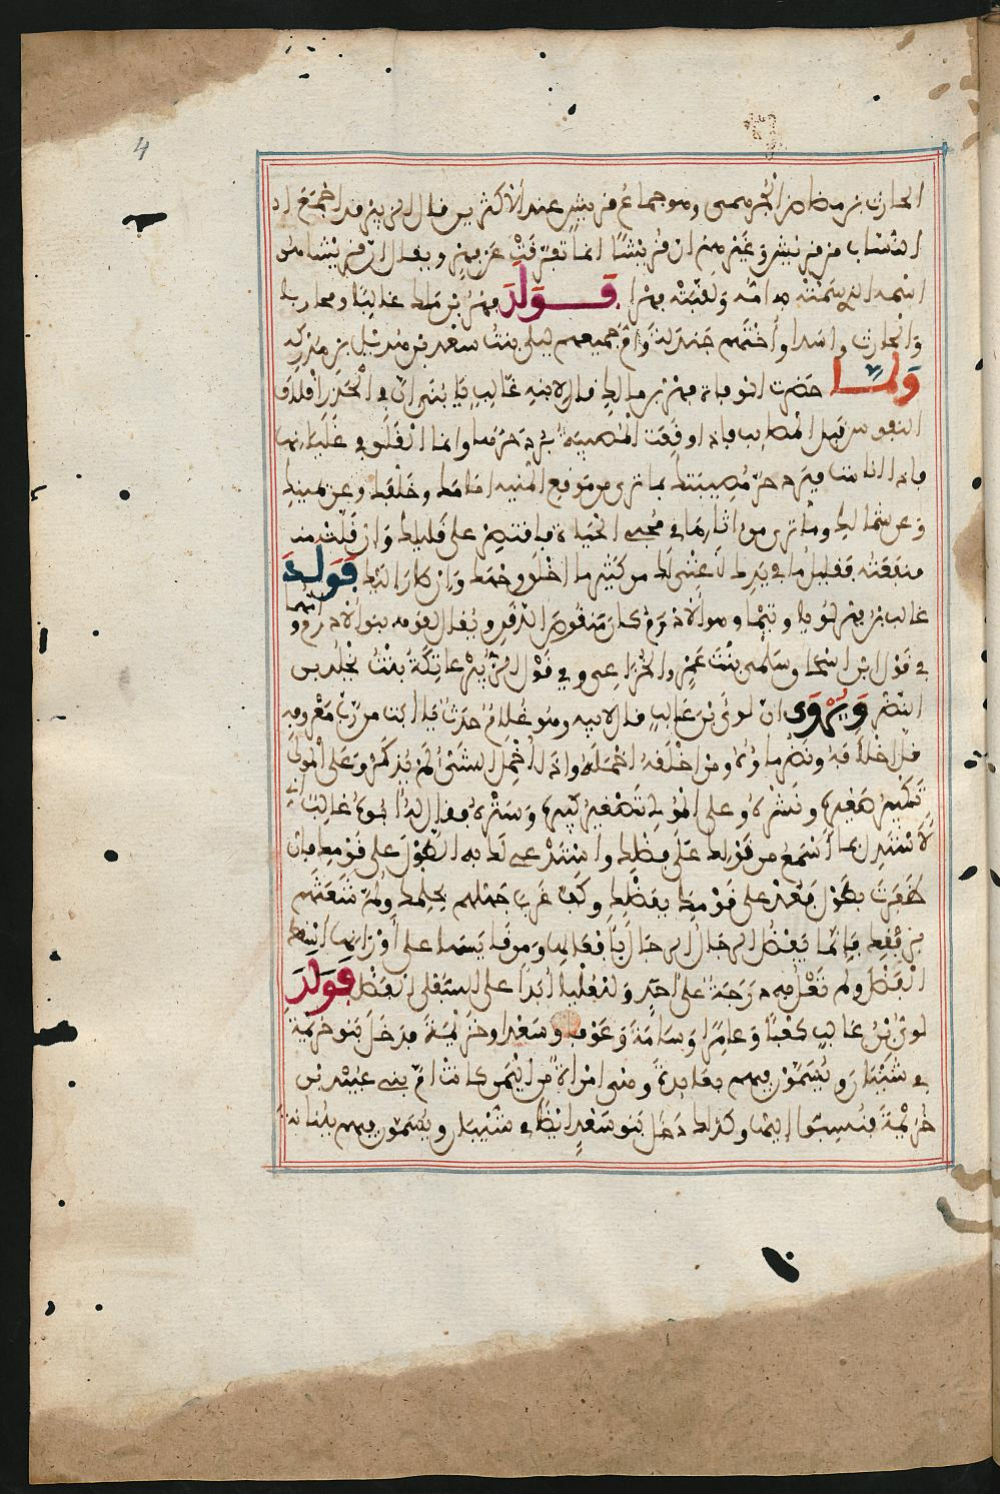 4
الحارث بن مضاض الجرهمى وهو جماع قريش عند الاكثرين قال الزبير قد اجمع
النساب من قريش وغيرهم ان قريشا انما تفرقت عن فهر ويقال ان قريشا هو
اسمه الذي سمته به امه ولقبته فهرا فولد فهر بن ملك غالبا ومحاربا
والحارث واسدا واختهم جندلة وام جميعهم ليلى بنت سعد بن هذيل بن مدركه
ولما حضرت الوفاة فهر بن مالك قال لابنه غالب يا بنى ان في الحزن اقلاق
النفوس قبل المصايب فاذا وقعت المصيبة برد حرها وانما القلق في غليانها
فاذا انا مت فبرد حر مصيبتك بما ترى من وقع المنيه امامك وخلفك وعن يمينك
وعن شمالك وما ترى من اثارها في محيى الحياة فاقتصر على قليلك وان قلت
منفعته فقليل ما في يدك اغنى لك من كثير ما اخلق وجهك وان صار اليك فولد
غالب بن فهر لؤيا وتيما وهو الادرم كان منقوص الذقن ويقال لقومه بنو الادرم
في قول ابن اسحاق سلمى بنت عمرو الخزاعى وفي قول الزبير عاتكة بنت يخلد بن
النضر ويروى ان لؤى بن غالب قال لابيه وهو غلام حدث يا ابت من رب معروفه
قل اخلاقه ونضر ماؤه ومن اخلفه اخمله واذا اخمل الشىء لم يذكر وعلى المولى
تكبير صغيره ونشره وعلى المولى تصغير كبيره وستره فقال له ابوه غالب اني
لاستدل بما اسمع من قولك على فضلك واستدعى لك به الطول على قومك فان
ظفرت بطول فعد على قومك بفضلك وكف غرب جهلهم بحلمك ولم شعثهم
برفقك فانما يفضل الرجال الرجال بافعالها ومن قايسها على اوزانها اسقط
الفضل ولم تعل به درجة على احد وللعليا ابدا على السفلى الفضل فولد
لؤى بن غالب كعبا وعامرا وسامة وعوفا وسعدا وخزيمة فدخل بنو خزيمة
في شيبان ويسمون فيهم بعايدة وهى امراة من اليمن كانت ام بني عبيد بن
خزيمة فنسبوا اليها وكذلك دخل بنو سعد ايضا في شيبان ويسمون فيهم بنانة